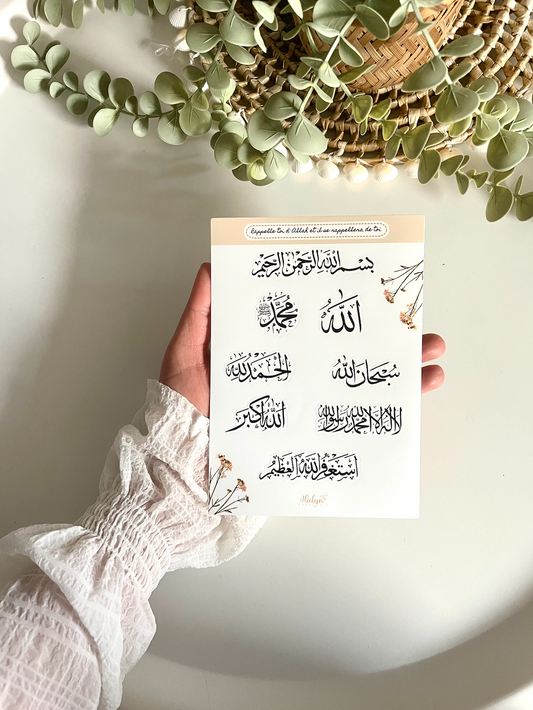 Rappelle toi d'Allah et il se rappellera de toi
بسم الله الرحمن الرحيم
الله محمد ﷺ
سبحان الله الحمد لله
لا اله الا الله محمد رسول الله الله أكبر
استغفر الله العظيم